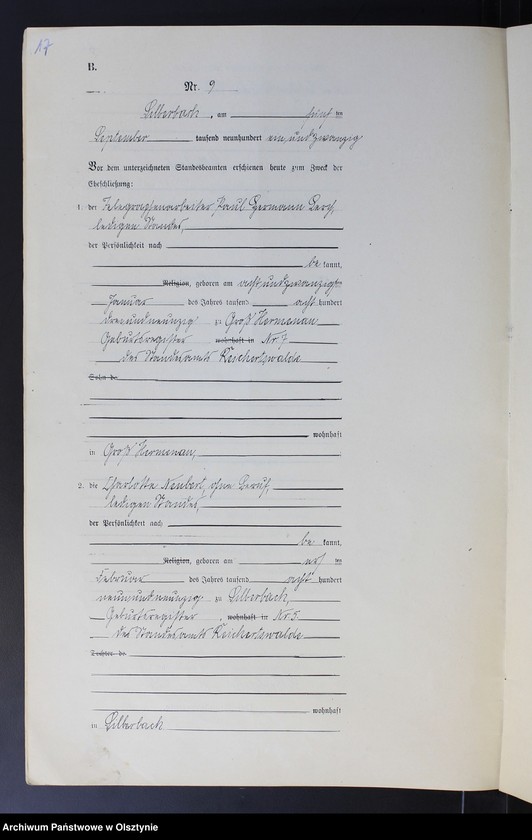 17
B.
Nr. 9
Silberbach, am fünften
September tausend neunhundert ein und zwanzig
Vor dem unterzeichneten Standesbeamten erschienen heute zum Zweck der
Eheschließung:
1. der Telegraphenarbeiter Paul Hermann
ledigen Standes,
der Persönlichkeit nach
be kannt,
Religion, geboren am acht und zwanzigsten
Januar des Jahres tausend acht hundert
drei und neunzig zu Groß Hermenau
Geburtsregister wohnhaft in Nr. 7
des Standesamts Reichertswalde
Sohn de
wohnhaft
in Groß Hermenau,
2. die Charlotte Neubert, ohne Beruf,
ledigen Standes,
der Persönlichkeit nach
be kannt,
Religion, geboren am ten
Februar des Jahres tausend acht hundert
neun und neunzig zu Silberbach,
Geburtsregister , wohnhaft in Nr 5
des Standesamts Reichertswalde
Tochter de
wohnhaft
in Silberbach
Archiwum Państwowe w Olsztynie